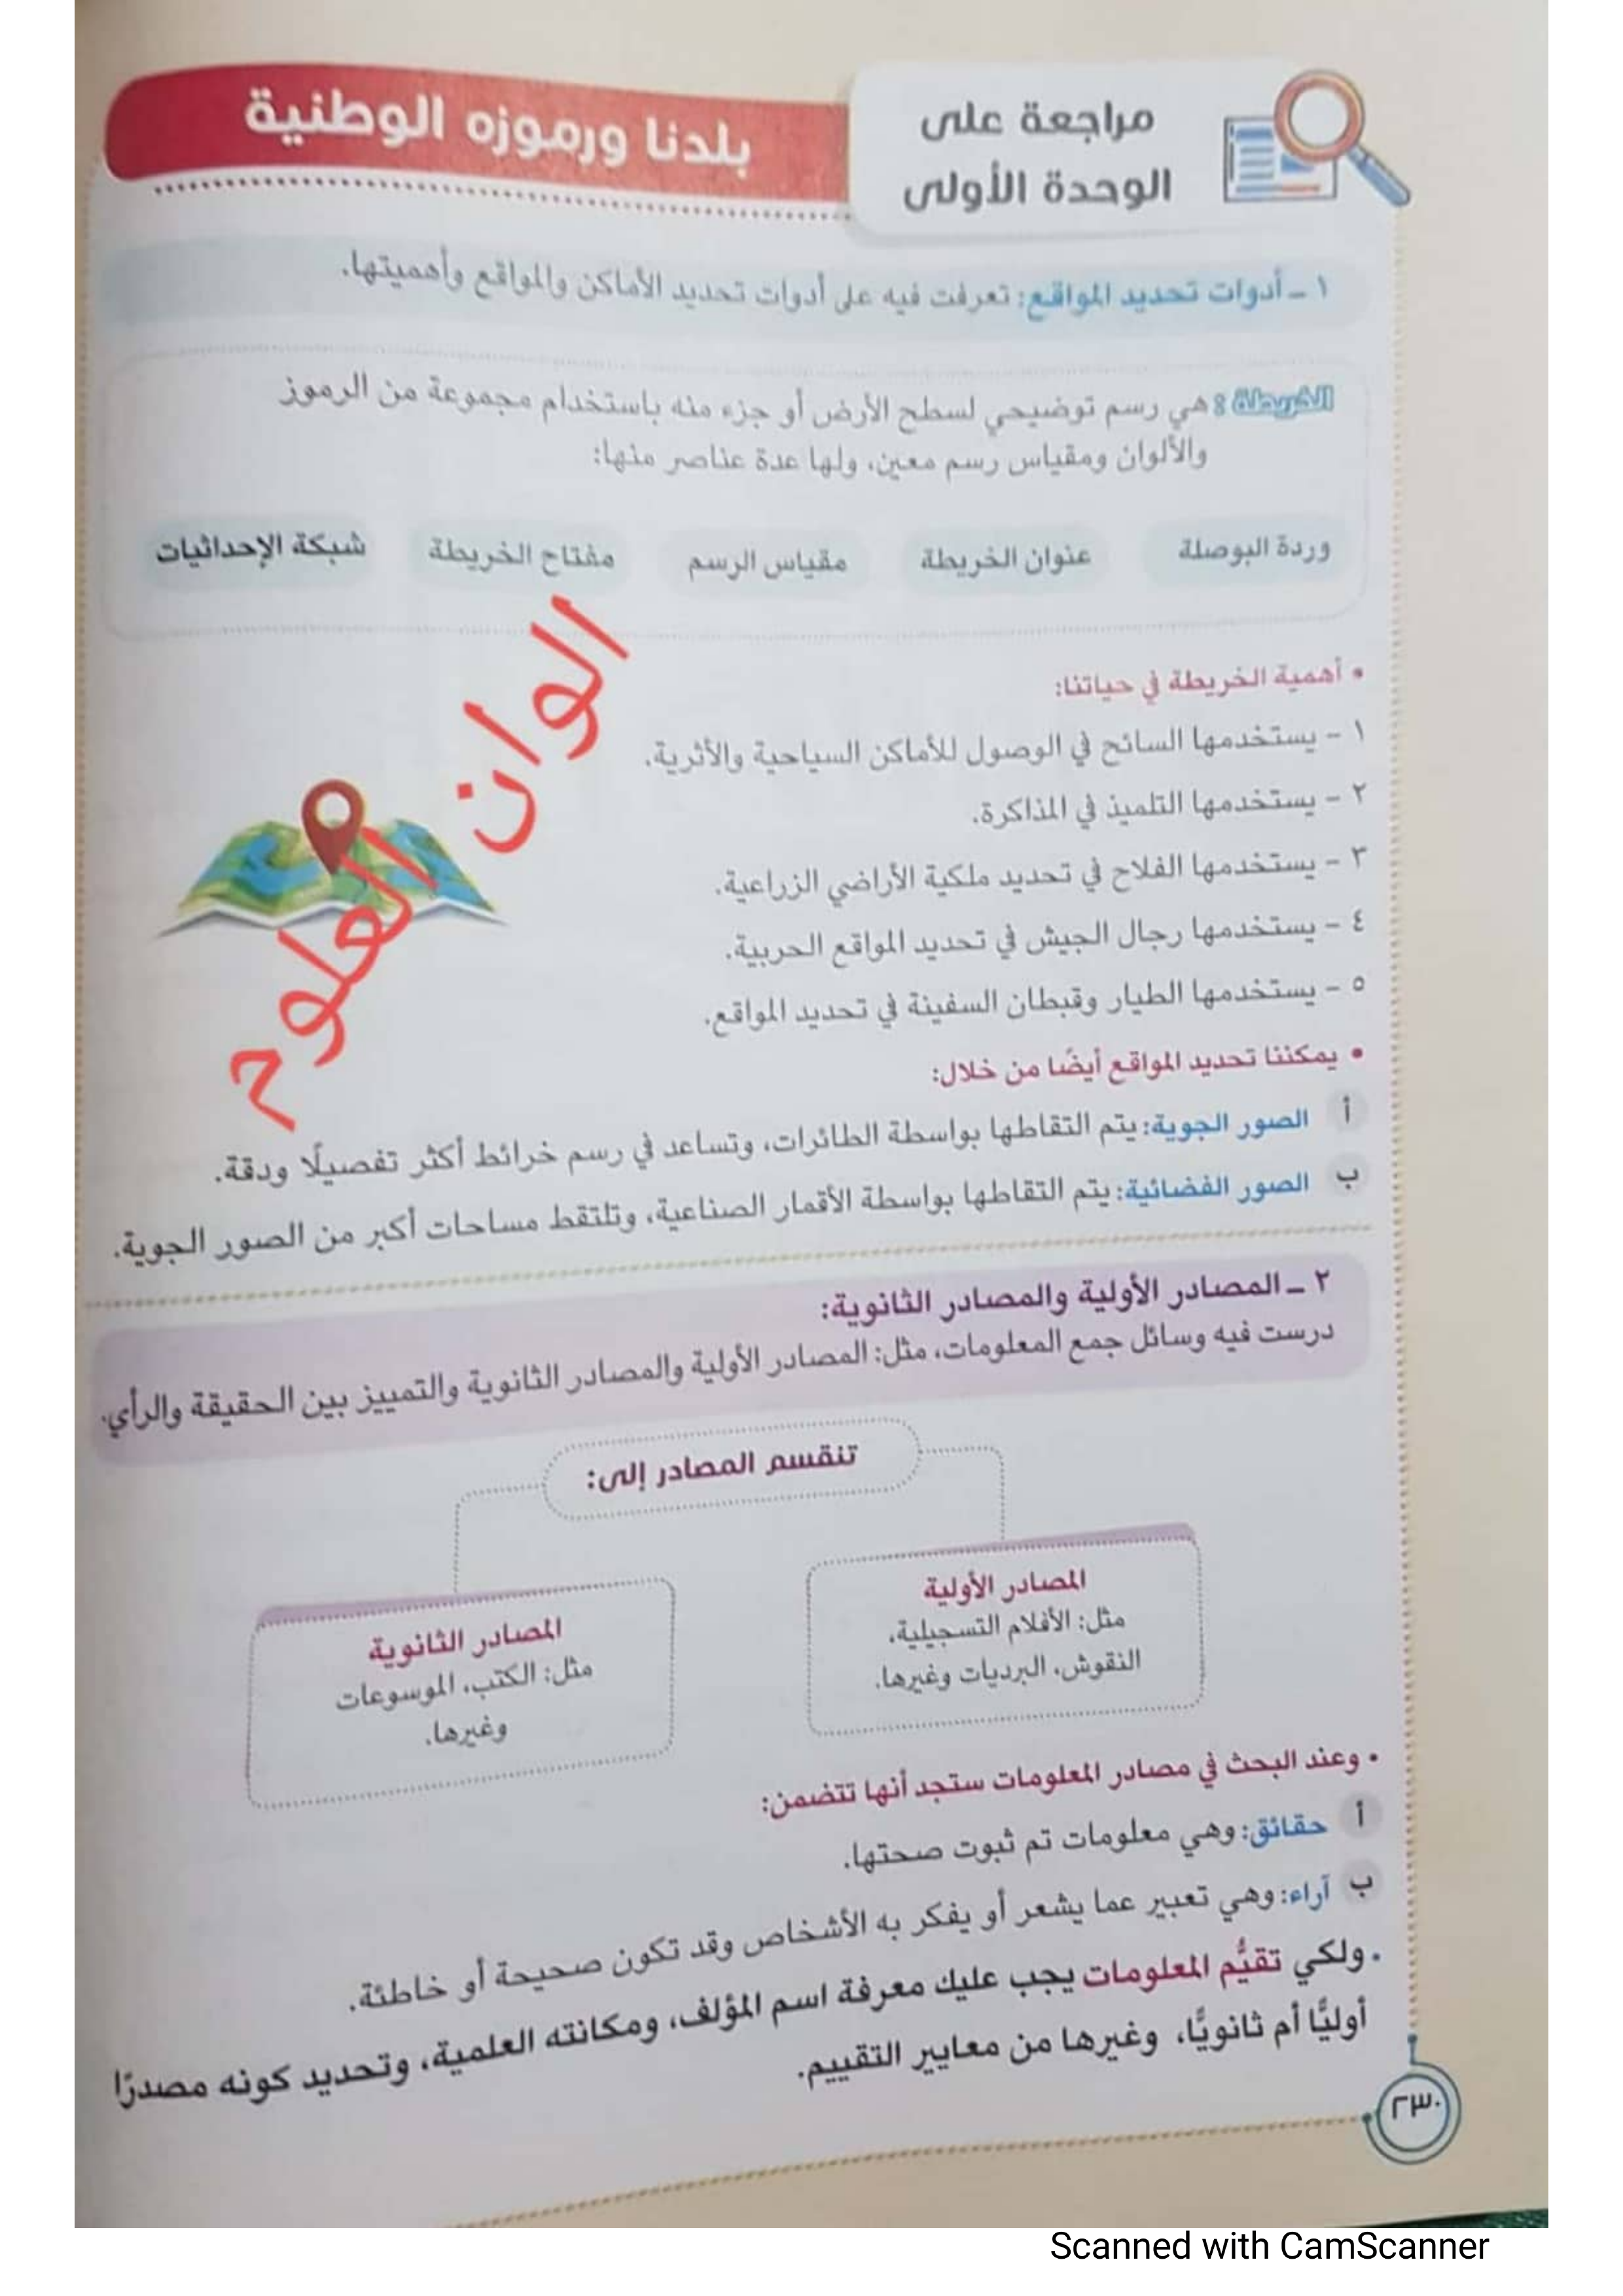 مراجعة على
الوحدة الأولى
بلدنا ورموزه الوطنية
١ - أدوات تحديد المواقع: تعرفت فيه على أدوات تحديد الأماكن والمواقع وأهميتها.
الخريطة: هي رسم توضيحي لسطح الأرض أو جزء منه باستخدام مجموعة من الرموز
والألوان ومقياس رسم معين، ولها عدة عناصر منها:
وردة البوصلة
عنوان الخريطة
مقياس الرسم
مفتاح الخريطة
شبكة الإحداثيات
• أهمية الخريطة في حياتنا:
١ - يستخدمها السائح في الوصول للأماكن السياحية والأثرية.
٢ - يستخدمها التلميذ في المذاكرة.
٣ - يستخدمها الفلاح في تحديد ملكية الأراضي الزراعية.
٤ - يستخدمها رجال الجيش في تحديد المواقع الحربية.
٥ - يستخدمها الطيار وقبطان السفينة في تحديد المواقع.
الوان العلوم
• يمكننا تحديد المواقع أيضًا من خلال:
أ الصور الجوية: يتم التقاطها بواسطة الطائرات، وتساعد في رسم خرائط أكثر تفصيلًا ودقة.
ب الصور الفضائية: يتم التقاطها بواسطة الأقمار الصناعية، وتلتقط مساحات أكبر من الصور الجوية.
٢ - المصادر الأولية والمصادر الثانوية:
درست فيه وسائل جمع المعلومات، مثل: المصادر الأولية والمصادر الثانوية والتمييز بين الحقيقة والرأي.
تنقسم المصادر إلى:
المصادر الأولية
مثل: الأفلام التسجيلية،
النقوش، البرديات وغيرها.
المصادر الثانوية
مثل: الكتب، الموسوعات
وغيرها.
• وعند البحث في مصادر المعلومات ستجد أنها تتضمن:
أ حقائق: وهي معلومات تم ثبوت صحتها.
ب آراء: وهي تعبير عما يشعر أو يفكر به الأشخاص وقد تكون صحيحة أو خاطئة.
• ولكي تقيُّم المعلومات يجب عليك معرفة اسم المؤلف، ومكانته العلمية، وتحديد كونه مصدرًا
أوليًّا أم ثانويًّا، وغيرها من معايير التقييم.
٢٣٠
Scanned with CamScanner